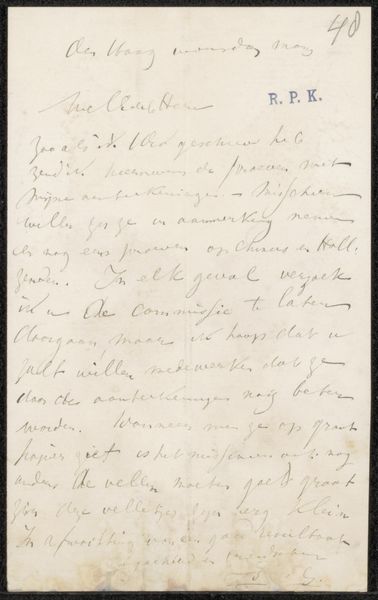 48
den Haag woensdag morg
WelEdele Heer
R. P. K.
Zooals ik UEd geschreven heb
zend ik hiernevens de proeven met
mijne aanteekeningen. Misschien
willen ze in aanmerking nemen
er nog eens proeven op Chinees en Holl.
zenden. In elk geval verzoek
ik u de commissie te laten
doorgaan, maar ik hoop dat u
zult willen medewerken dat ze
door de aanteekeningen nog beter
worden. Wanneer men ze op groot
papier ziet is het misschien ook nog
anders de vellen moeten goed groot
zijn deze velletjes zijn erg klein
In afwachting van een goed resultaat